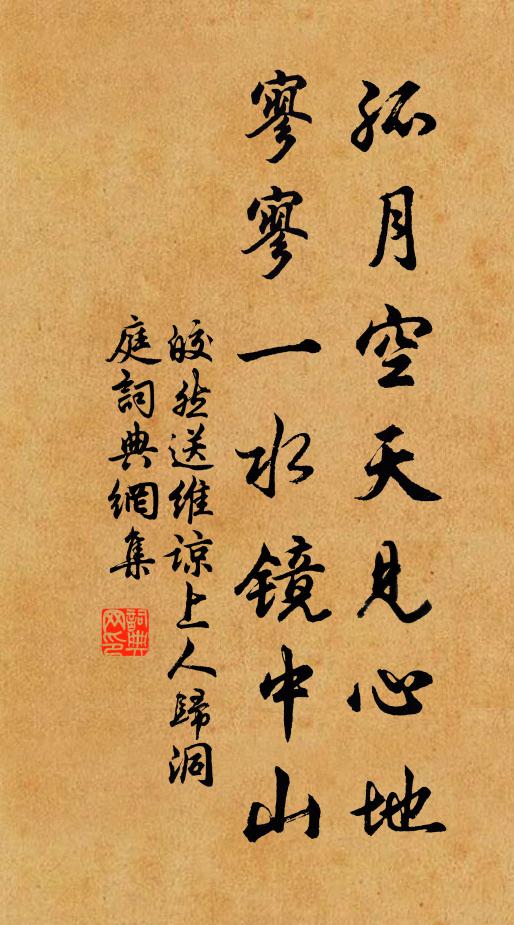 孤月空天見心地
寥寥一水镜中山
皎然送維諒上人歸洞
庭詞典網集
詞典
网印